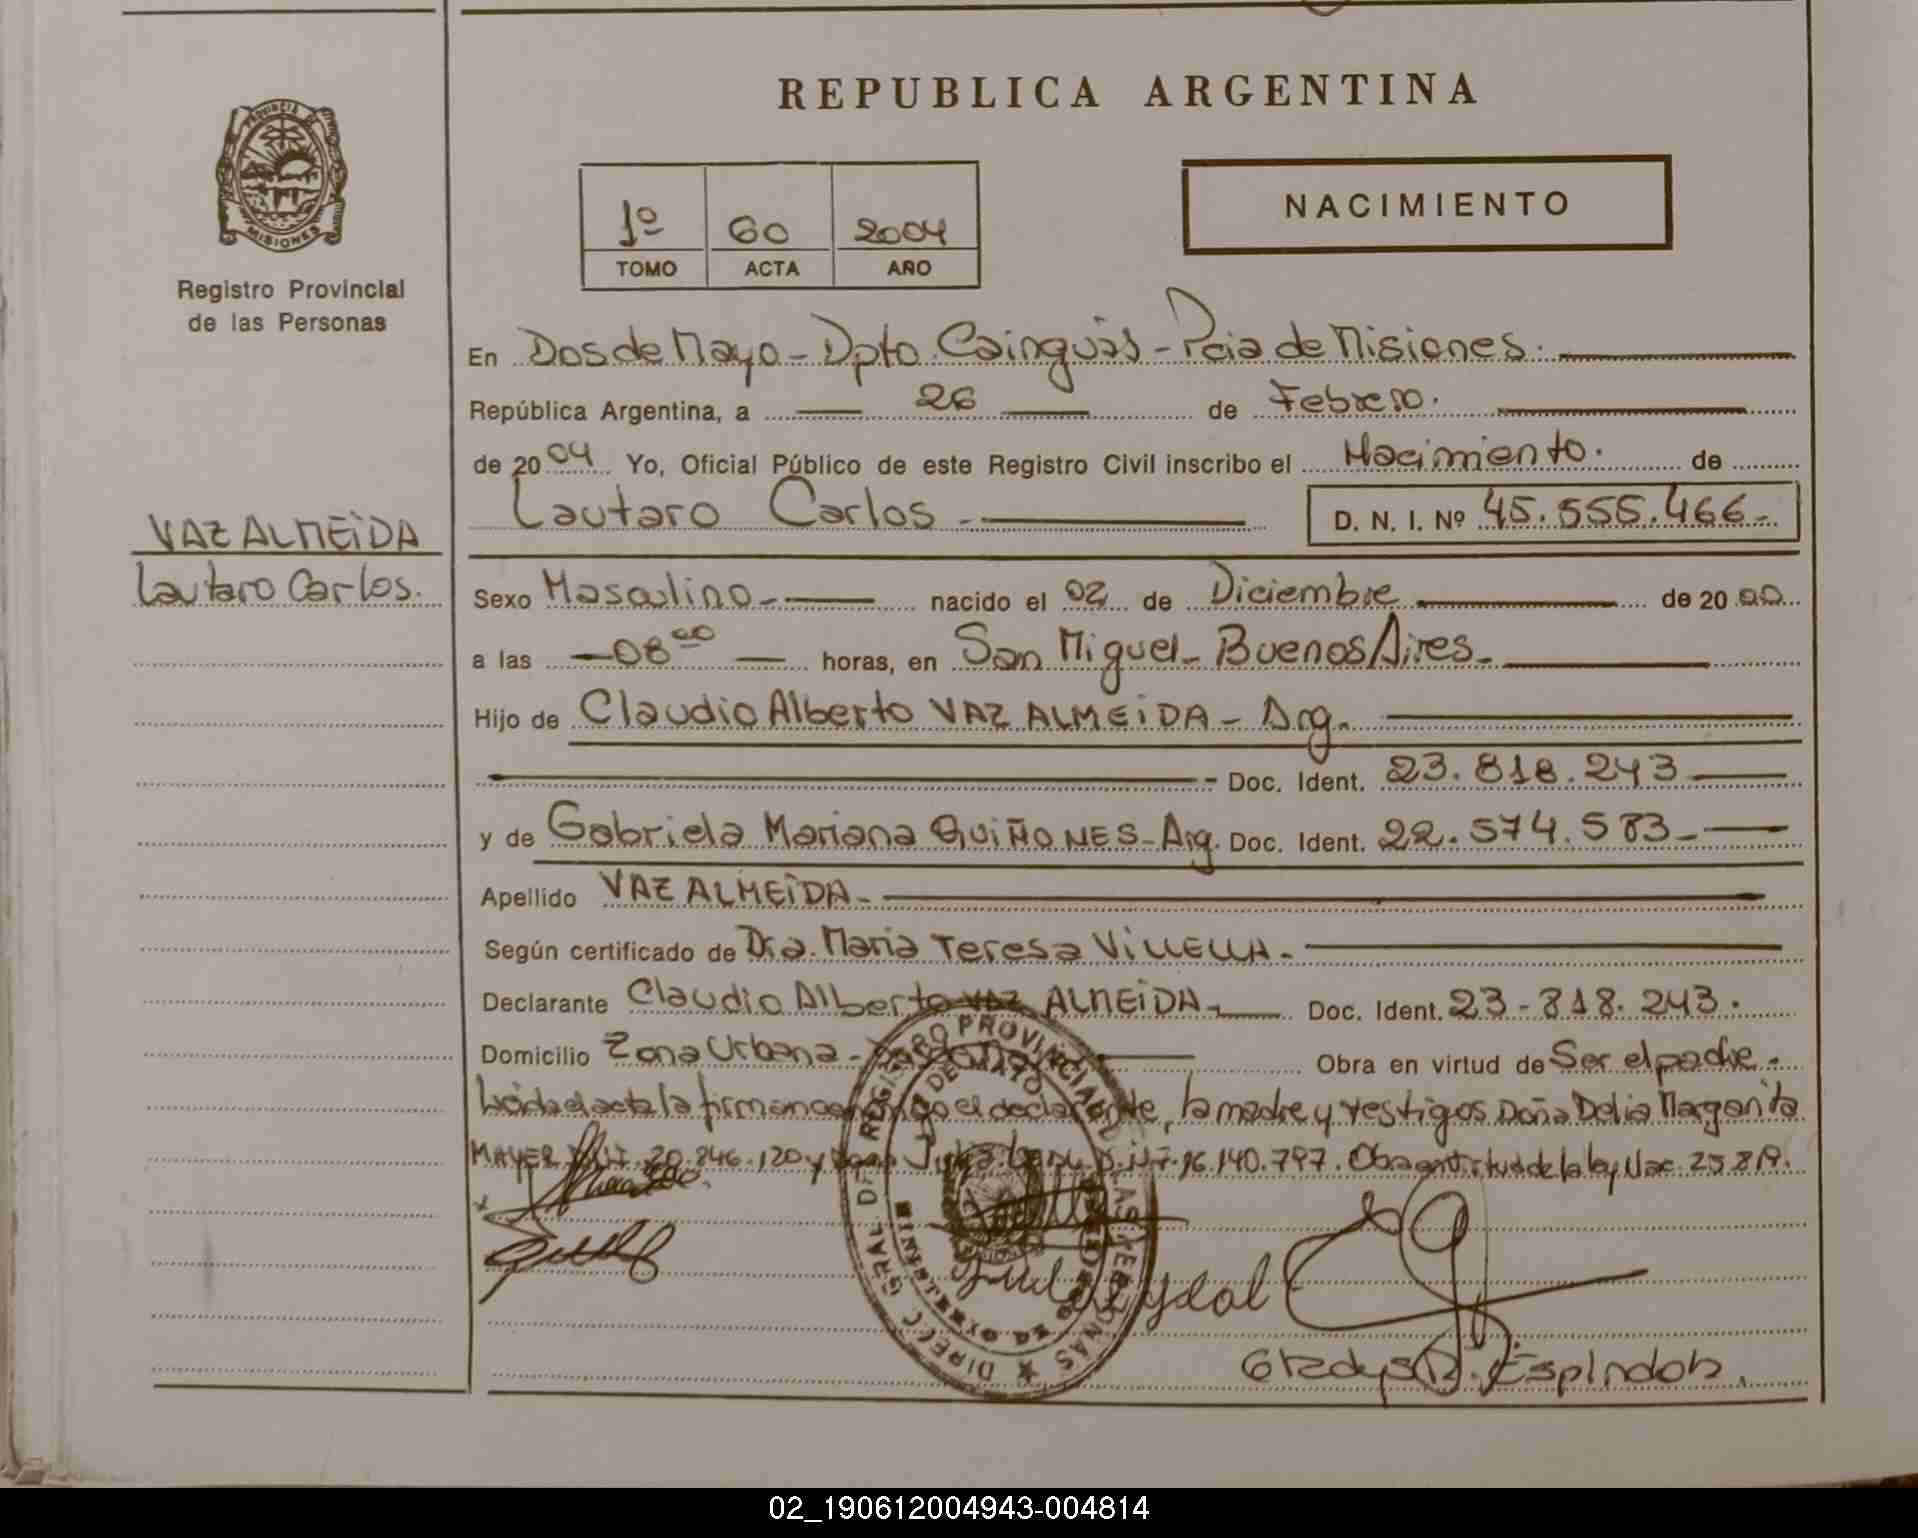 REPUBLICA ARGENTINA
PROVINCIA DE MISIONES
Registro Provincial
de las Personas
1º 60 2004
TOMO ACTA AÑO
NACIMIENTO
En Dos de Mayo - Dpto. Cainguás - Pcia de Misiones.
República Argentina, a 26 de Febrero.
de 2004 Yo, Oficial Público de este Registro Civil inscribo el Nacimiento. de
Lautaro Carlos - D. N. I. Nº 45.555.466-
VAZ ALMEIDA
Lautaro Carlos.
Sexo Masculino - nacido el 02 de Diciembre de 2000
a las 08 00 horas, en San Miguel - Buenos Aires -
Hijo de Claudio Alberto VAZ ALMEIDA - Arg.
Doc. Ident. 23.818.243
y de Gabriela Mariana QUIÑONES - Arg. Doc. Ident. 22.574.583 -
Apellido VAZ ALMEIDA -
Según certificado de Dra. Maria Teresa VILLELLA -
Declarante Claudio Alberto VAZ ALMEIDA - Doc. Ident. 23-818.243.
Domicilio Zona Urbana - Obra en virtud de Ser el padre.
Leída el acta la firman conmigo el declarante, la madre y testigos Doña Delia Margarita
MAYER 20.246.120 y 16.140.797. Obra en virtud de la ley Nac. 25819.
DIRECC GRAL DE REGISTRO PROVINCIAL DE LAS PERSONAS
DOS DE MAYO
Gladys R. Espindola
02_190612004943-004814